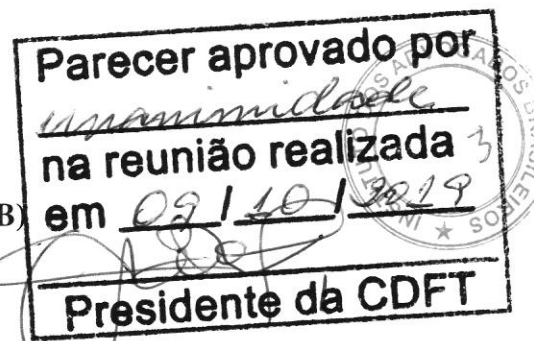 Parecer aprovado por
unanimidade
na reunião realizada
B) em 09/10/2019
Presidente da CDFT
3